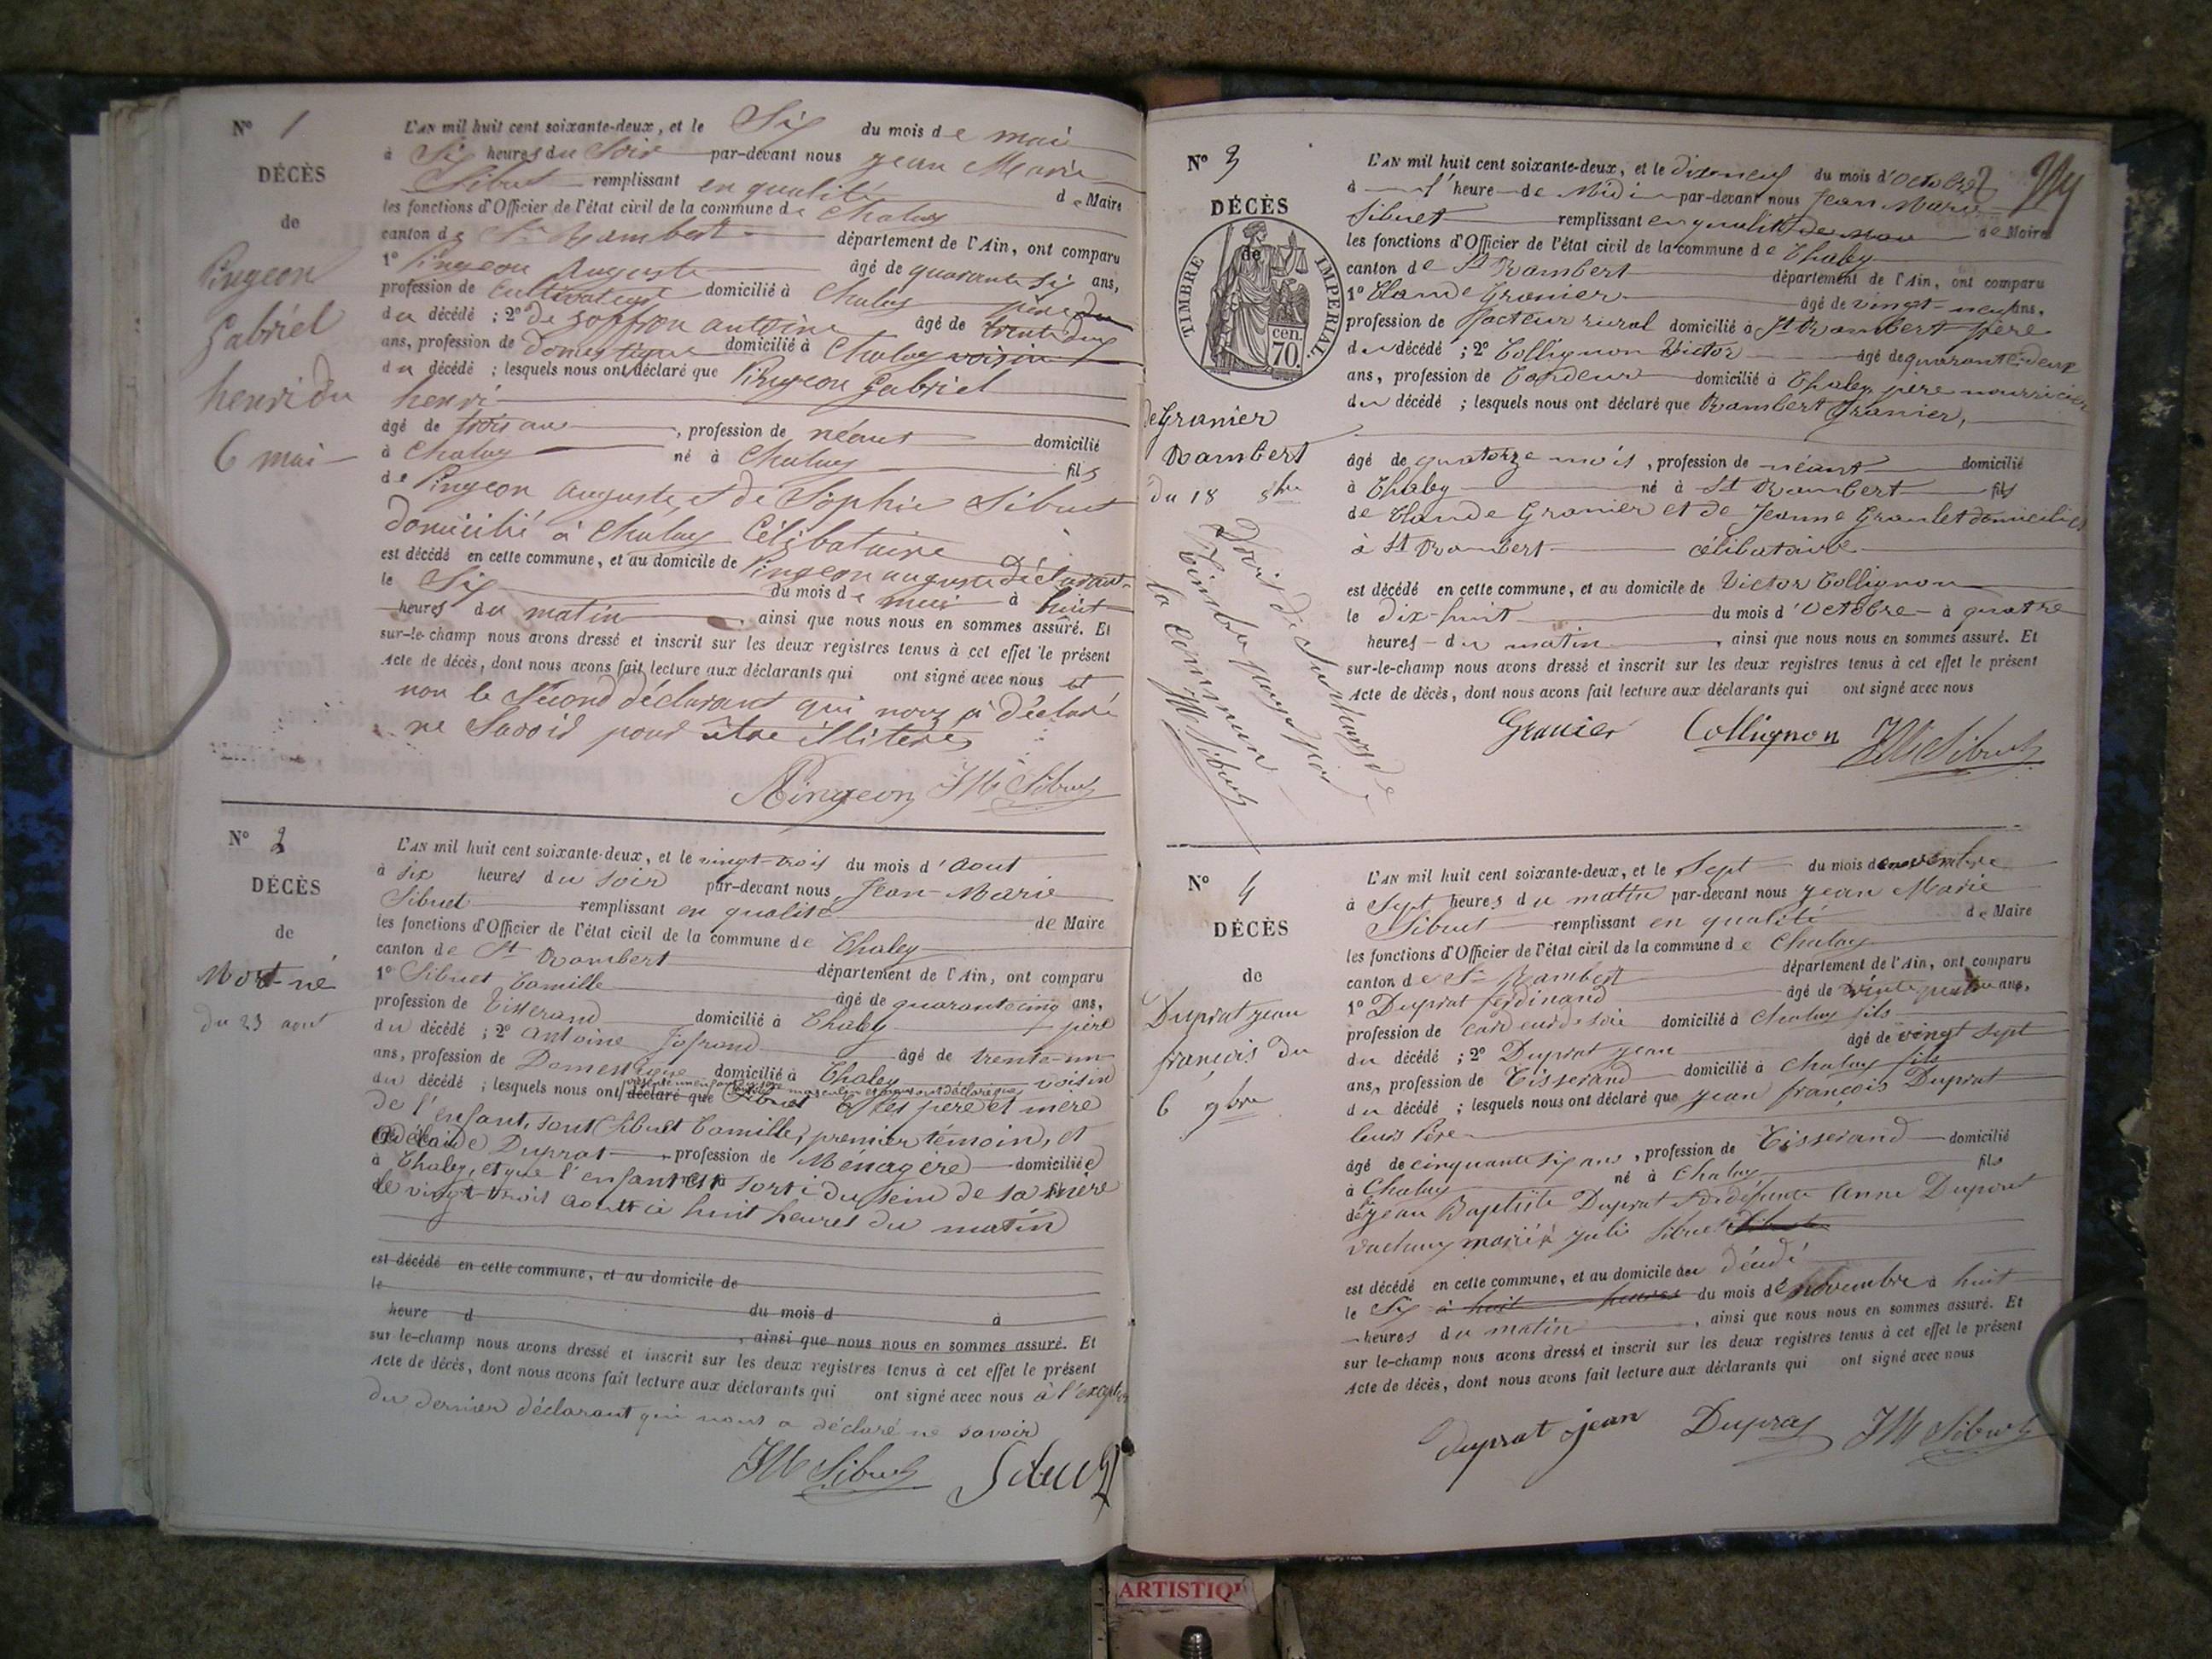 N° 1
DÉCÈS
de
Pingeon
Gabriel
henri du
6 mai
L'AN mil huit cent soixante-deux, et le Six du mois de mai
à Six heures du Soir par-devant nous jean Marie
Sibuet remplissant en qualité de Maire
les fonctions d'Officier de l'état civil de la commune de Chaley
canton de St Rambert département de l'Ain, ont comparu
1° Pingeon Auguste âgé de quarante six ans,
profession de Cultivateur domicilié à Chaley père du
du décédé ; 2° antoine âgé de trente deux
ans, profession de domestique domicilié à Chaley voisin
du décédé ; lesquels nous ont déclaré que Pingeon Gabriel
henri
âgé de trois ans, profession de néant domicilié
à Chaley né à Chaley fils
de Pingeon Auguste et de Sophie Sibuet
domicilié à Chaley Célibataire
est décédé en cette commune, et au domicile de Pingeon auguste Déclarant
le Six du mois de mai à huit
heures du matin, ainsi que nous nous en sommes assuré. Et
sur-le-champ nous avons dressé et inscrit sur les deux registres tenus à cet effet le présent
Acte de décès, dont nous avons fait lecture aux déclarants qui ont signé avec nous et
non le Second déclarant qui nous a déclaré
ne Savoir pour être illitéré
Pingeon JM Sibuet
N° 2
DÉCÈS
de
Mort-né
du 23 aout
L'AN mil huit cent soixante-deux, et le vingt-trois du mois d'Aout
à six heures du soir par-devant nous Jean-Marie
Sibuet remplissant en qualité de Maire
les fonctions d'Officier de l'état civil de la commune de Chaley
canton de St Rambert département de l'Ain, ont comparu
1° Sibuet Camille âgé de quarante cinq ans,
profession de Tisserand domicilié à Chaley père
du décédé ; 2° Antoine Jofrond âgé de trente-un
ans, profession de Domestique domicilié à Chaley voisin
du décédé ; lesquels nous ont déclaré que les père et mère
de l'enfant, sont Sibuet Camille, premier témoin, et
Adélaïde Duprat profession de Ménagère domiciliée
à Chaley, et que l'enfant est sorti du sein de sa mère
le vingt-trois Aout à huit heures du matin
est décédé en cette commune, et au domicile de
le du mois d à
heure d, ainsi que nous nous en sommes assuré. Et
sur le-champ nous avons dressé et inscrit sur les deux registres tenus à cet effet le présent
Acte de décès, dont nous avons fait lecture aux déclarants qui ont signé avec nous à l'exception
du dernier déclarant qui nous a déclaré ne savoir
JM Sibuet Sibuet
N° 3
DÉCÈS
de
TIMBRE IMPERIAL
70 cen.
de Granier
Rambert
du 18 8bre
Droit de
timbre payé par
la commune
JM Sibuet
L'AN mil huit cent soixante-deux, et le dixneuf du mois d'Octobre
à l'heure de Midi par-devant nous Jean Marie
Sibuet remplissant en qualité de Maire
les fonctions d'Officier de l'état civil de la commune de Chaley
canton de St Rambert département de l'Ain, ont comparu
1° Claude Granier âgé de vingt-neuf ans,
profession de facteur rural domicilié à St Rambert père
du décédé ; 2° Collignon Victor âgé de quarante-deux
ans, profession de Cardeur domicilié à Chaley père nourricier
du décédé ; lesquels nous ont déclaré que Rambert Granier,
âgé de quatorze mois, profession de néant domicilié
à Chaley né à St Rambert fils
de Claude Granier et de Jeanne Graulet domiciliés
à St Rambert célibataire
est décédé en cette commune, et au domicile de Victor Collignon
le dix-huit du mois d'Octobre à quatre
heures du matin, ainsi que nous nous en sommes assuré. Et
sur-le-champ nous avons dressé et inscrit sur les deux registres tenus à cet effet le présent
Acte de décès, dont nous avons fait lecture aux déclarants qui ont signé avec nous
Granier Collignon JM Sibuet
N° 4
DÉCÈS
de
Duprat jean
françois du
6 9bre
L'AN mil huit cent soixante-deux, et le Sept du mois de novembre
à Sept heures du matin par-devant nous jean Marie
Sibuet remplissant en qualité de Maire
les fonctions d'Officier de l'état civil de la commune de Chaley
canton de St Rambert département de l'Ain, ont comparu
1° Duprat ferdinand âgé de ans,
profession de Cardeur de soie domicilié à Chaley fils
du décédé ; 2° Duprat jean âgé de vingt sept
ans, profession de Tisserand domicilié à Chaley fils
du décédé ; lesquels nous ont déclaré que jean françois Duprat
leurs Père
âgé de cinquante six ans, profession de Tisserand domicilié
à Chaley né à Chaley fils
de jean Baptiste Duprat et de défunte Anne Duprat
marié à julie Sibuet
est décédé en cette commune, et au domicile du décédé
le Six à huit heures du mois de Novembre à huit
heures du matin, ainsi que nous nous en sommes assuré. Et
sur le-champ nous avons dressé et inscrit sur les deux registres tenus à cet effet le présent
Acte de décès, dont nous avons fait lecture aux déclarants qui ont signé avec nous
duprat jean Duprat JM Sibuet
ARTISTIQ